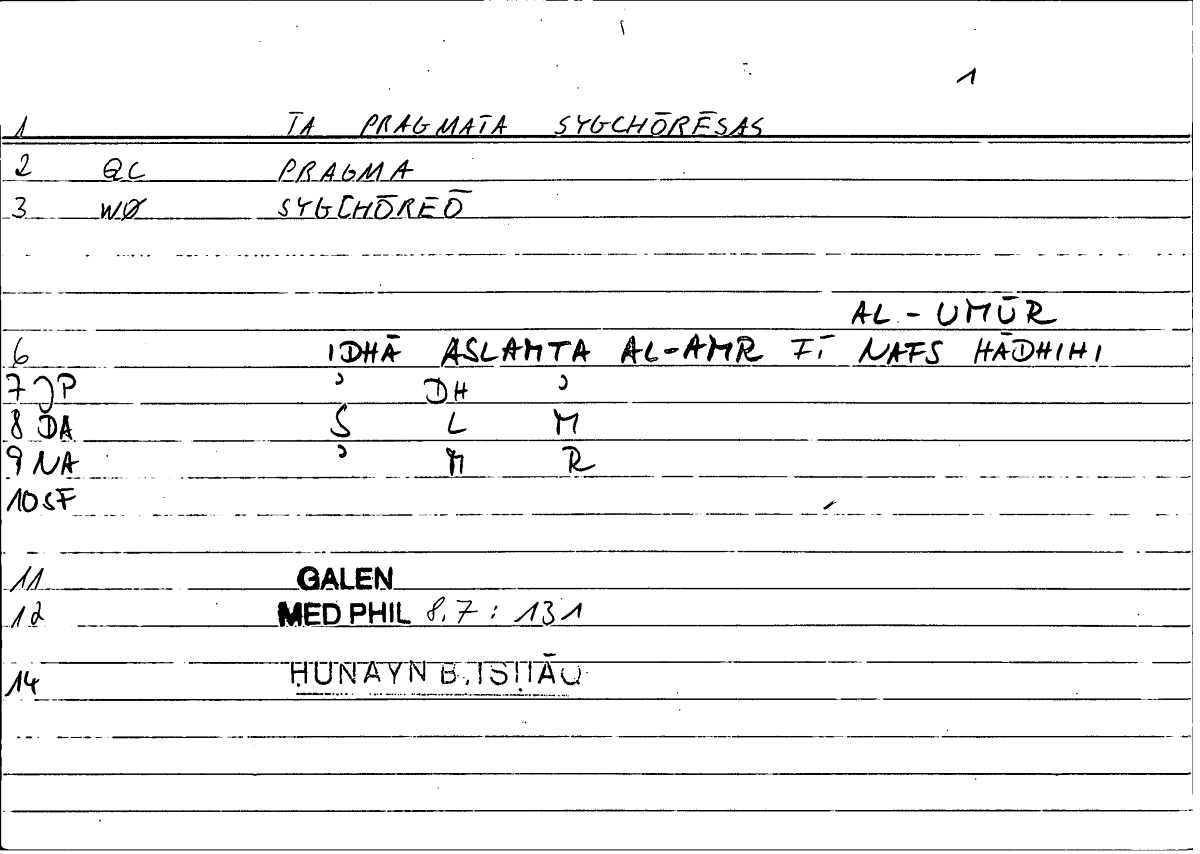 1
1 TA PRAGMATA SYGCHŌRĒSAS
2 QC PRAGMA
3 WØ SYGCHŌREŌ
AL-UMŪR
6 IDHĀ ASLAMTA AL-AMR FĪ NAFS HĀDHIHI
7 JP ʾ DH ʾ
8 DA S L M
9 NA ʾ M R
10 SF
11 GALEN
12 MED PHIL 8,7 : 131
14 ḤUNAYN B. ISḤĀQ